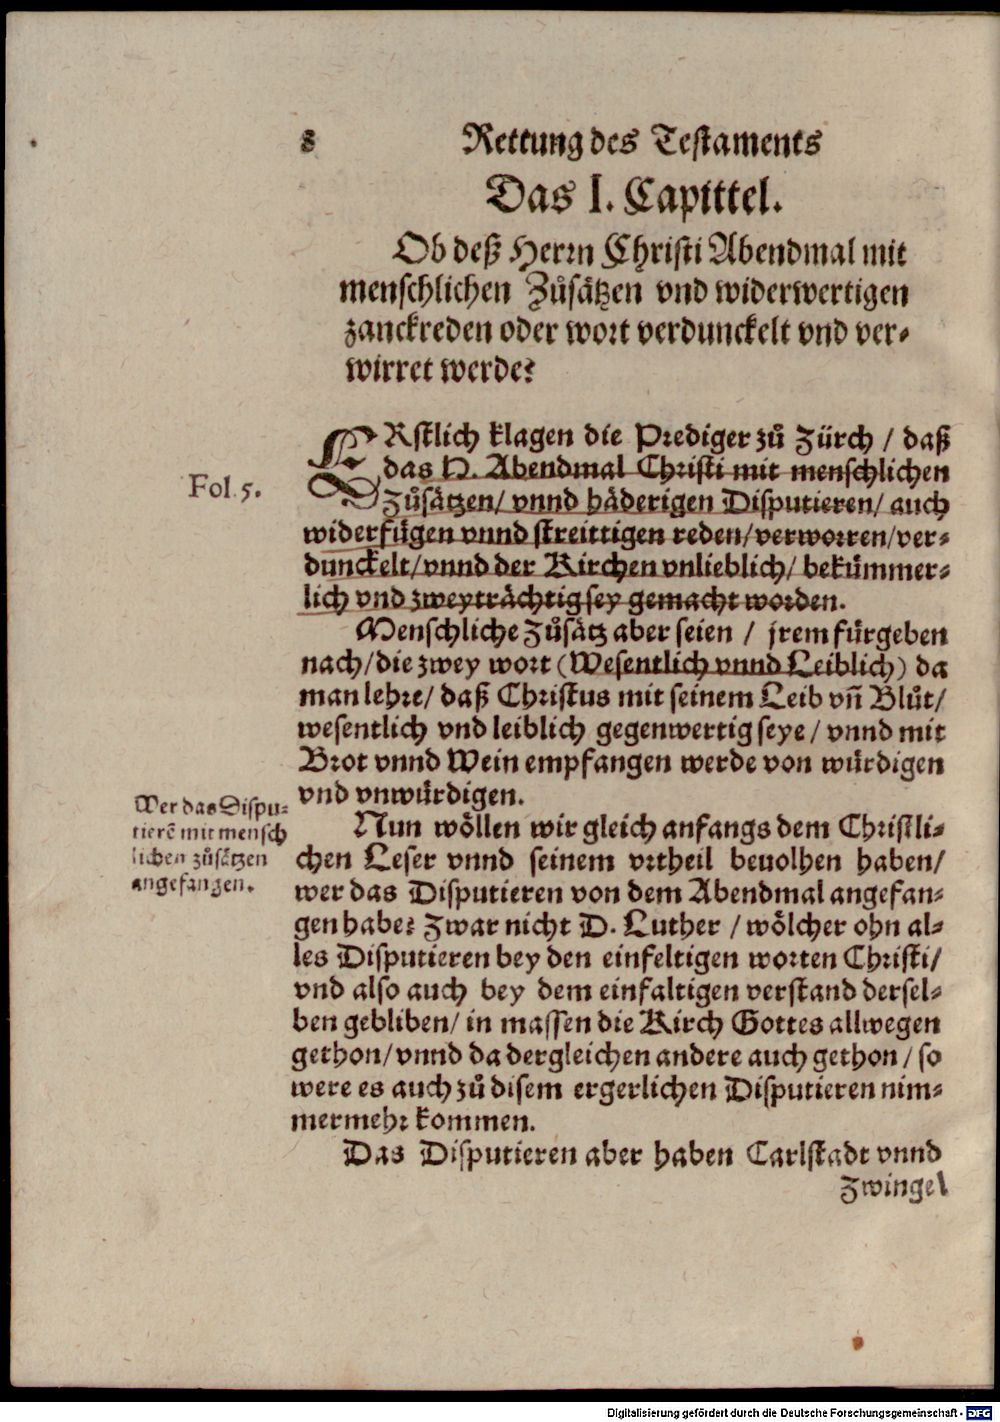 8 Rettung des Testaments
Das I. Capittel.
Ob deß Herrn Christi Abendmal mit
menschlichen Zůsätzen vnd widerwertigen
zanckreden oder wort verdunckelt vnd ver-
wirret werde?
ERstlich klagen die Prediger zů Zürch / daß
das H. Abendmal Christi mit menschlichen
Fol. 5.
Zůsätzen/ vnnd häderigen Disputieren/ auch
widerfügen vnnd streittigen reden/ verworren/ ver-
dunckelt/ vnnd der Kirchen vnlieblich/ bekümmer-
lich vnd zweyträchtig sey gemacht worden.
Menschliche Zůsätz aber seien / jrem fürgeben
nach/ die zwey wort (Wesentlich vnnd Leiblich) da
man lehre/ daß Christus mit seinem Leib vñ Blůt/
wesentlich vnd leiblich gegenwertig seye / vnnd mit
Brot vnnd Wein empfangen werde von würdigen
vnd vnwürdigen.
Wer das Dispu-
tierẽ mit mensch
lichen zůsätzen
angefangen.
Nun wöllen wir gleich anfangs dem Christli-
chen Leser vnnd seinem vrtheil beuolhen haben/
wer das Disputieren von dem Abendmal angefan-
gen habe? Zwar nicht D. Luther / wölcher ohn al-
les Disputieren bey den einfeltigen worten Christi/
vnd also auch bey dem einfaltigen verstand dersel-
ben gebliben/ in massen die Kirch Gottes allwegen
gethon/ vnnd da dergleichen andere auch gethon / so
were es auch zů disem ergerlichen Disputieren nim-
mermehr kommen.
Das Disputieren aber haben Carlstadt vnnd
Zwingel
Digitalisierung gefördert durch die Deutsche Forschungsgemeinschaft - DFG